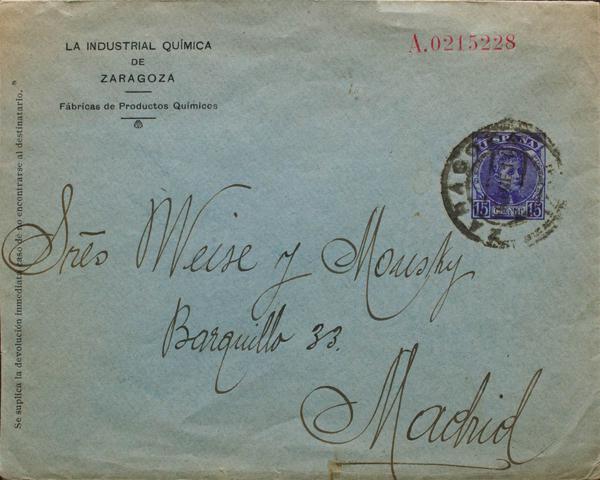 LA INDUSTRIAL QUÍMICA
DE
ZARAGOZA
Fábricas de Productos Químicos
A.0215228
ESPAÑA
15 15
ZARAGO
Sres Weise y
Barquillo 33.
Madrid
Se suplica la devolución inmediata caso de no encontrarse al destinatario.